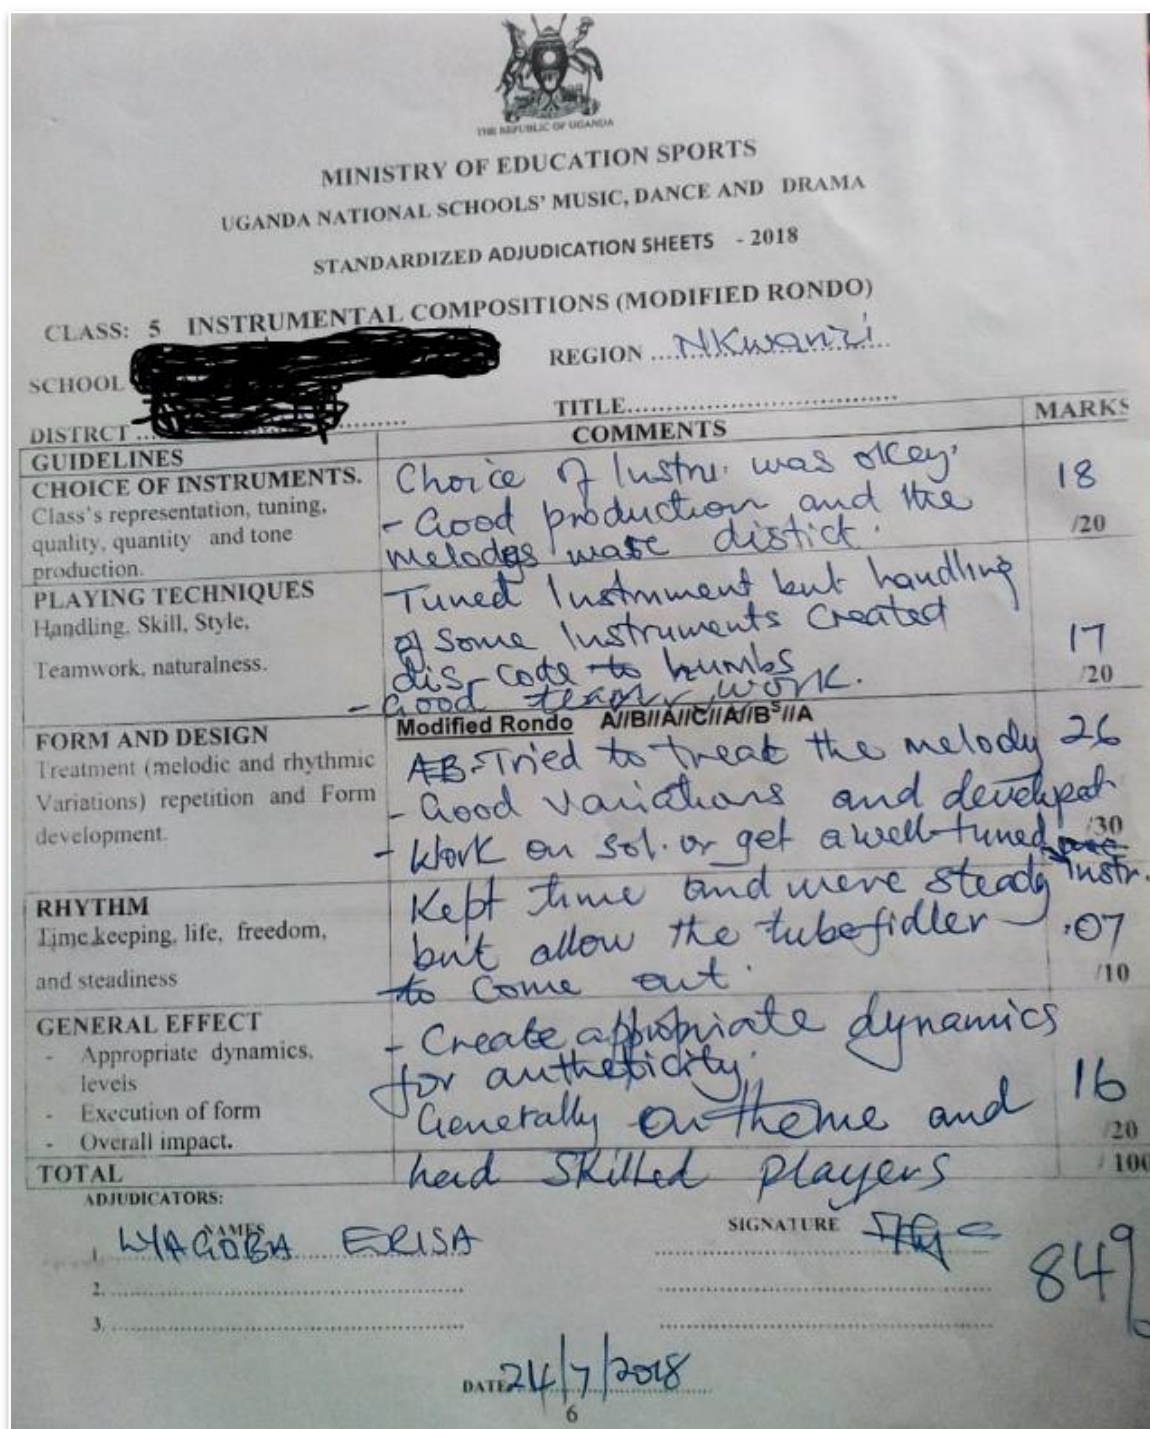 THE REPUBLIC OF UGANDA
MINISTRY OF EDUCATION SPORTS
UGANDA NATIONAL SCHOOLS' MUSIC, DANCE AND DRAMA
STANDARDIZED ADJUDICATION SHEETS - 2018
CLASS: 5 INSTRUMENTAL COMPOSITIONS (MODIFIED RONDO)
SCHOOL
REGION ....NKwanzi....
DISTRCT ....
TITLE....
GUIDELINES
COMMENTS
MARKS
CHOICE OF INSTRUMENTS.
Class's representation, tuning,
quality, quantity and tone
production.
Choice of Instru. was okey.
- Good production and the
melodes ware distict.
18
/20
PLAYING TECHNIQUES
Handling, Skill, Style,
Teamwork, naturalness.
Tuned Instrument but handling
of Some Instruments Created
dis-code to
- Good team work.
17
/20
FORM AND DESIGN
Treatment (melodic and rhythmic
Variations) repetition and Form
development.
Modified Rondo A//B//A//C//A//Bˢ//A
AB-Tried to treat the melody
- Good variations and
- Work on sol. or get a well-tuned
Instr.
26
/30
RHYTHM
Time keeping, life, freedom,
and steadiness
Kept time and were steady
but allow the tubefidler
to come out.
.07
/10
GENERAL EFFECT
- Appropriate dynamics,
levels
- Execution of form
- Overall impact.
- Create appropriate dynamics
for autheticity.
Generally on theme and
had Skilled players
16
/20
TOTAL
/100
ADJUDICATORS:
NAMES
SIGNATURE
1. WAGOBA ERISA
2.
3.
84%
DATE 24/7/2018
6